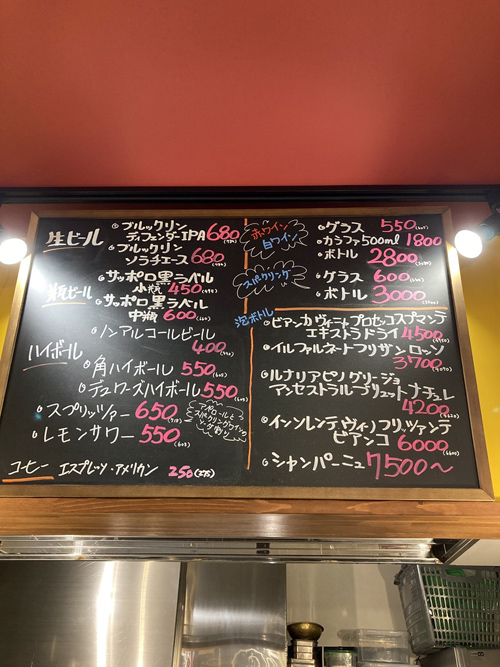 生ビール
◎ブルックリン
ディフェンダーIPA 680
◎ブルックリン
ソラチエース 680
瓶ビール
◎サッポロ黒ラベル
小瓶 450
◎サッポロ黒ラベル
中瓶 600
◎ノンアルコールビール
400
ハイボール
◎角ハイボール 550
◎デュワーズハイボール 550
◎スプリッツァー 650
アペロールと
スパークリングワイン
ソーダ割り
◎レモンサワー 550
コーヒー エスプレッソ・アメリカン 250(275)
赤ワイン
白ワイン
◎グラス 550
◎カラファ500ml 1800
◎ボトル 2800
スパークリング
◎グラス 600
◎ボトル 3000
泡ボトル
◎ビアンカヴィーニャプロセッコスプマンテ
エキストラドライ 4500
◎イルファルネートフリザンロッソ
3700
◎ルナリアピノグリージョ
アンセストラルブリュットナチュレ
4200
◎インソレンテヴィーノフリッツァンテ
ビアンコ 6000(6600)
◎シャンパーニュ 7500〜